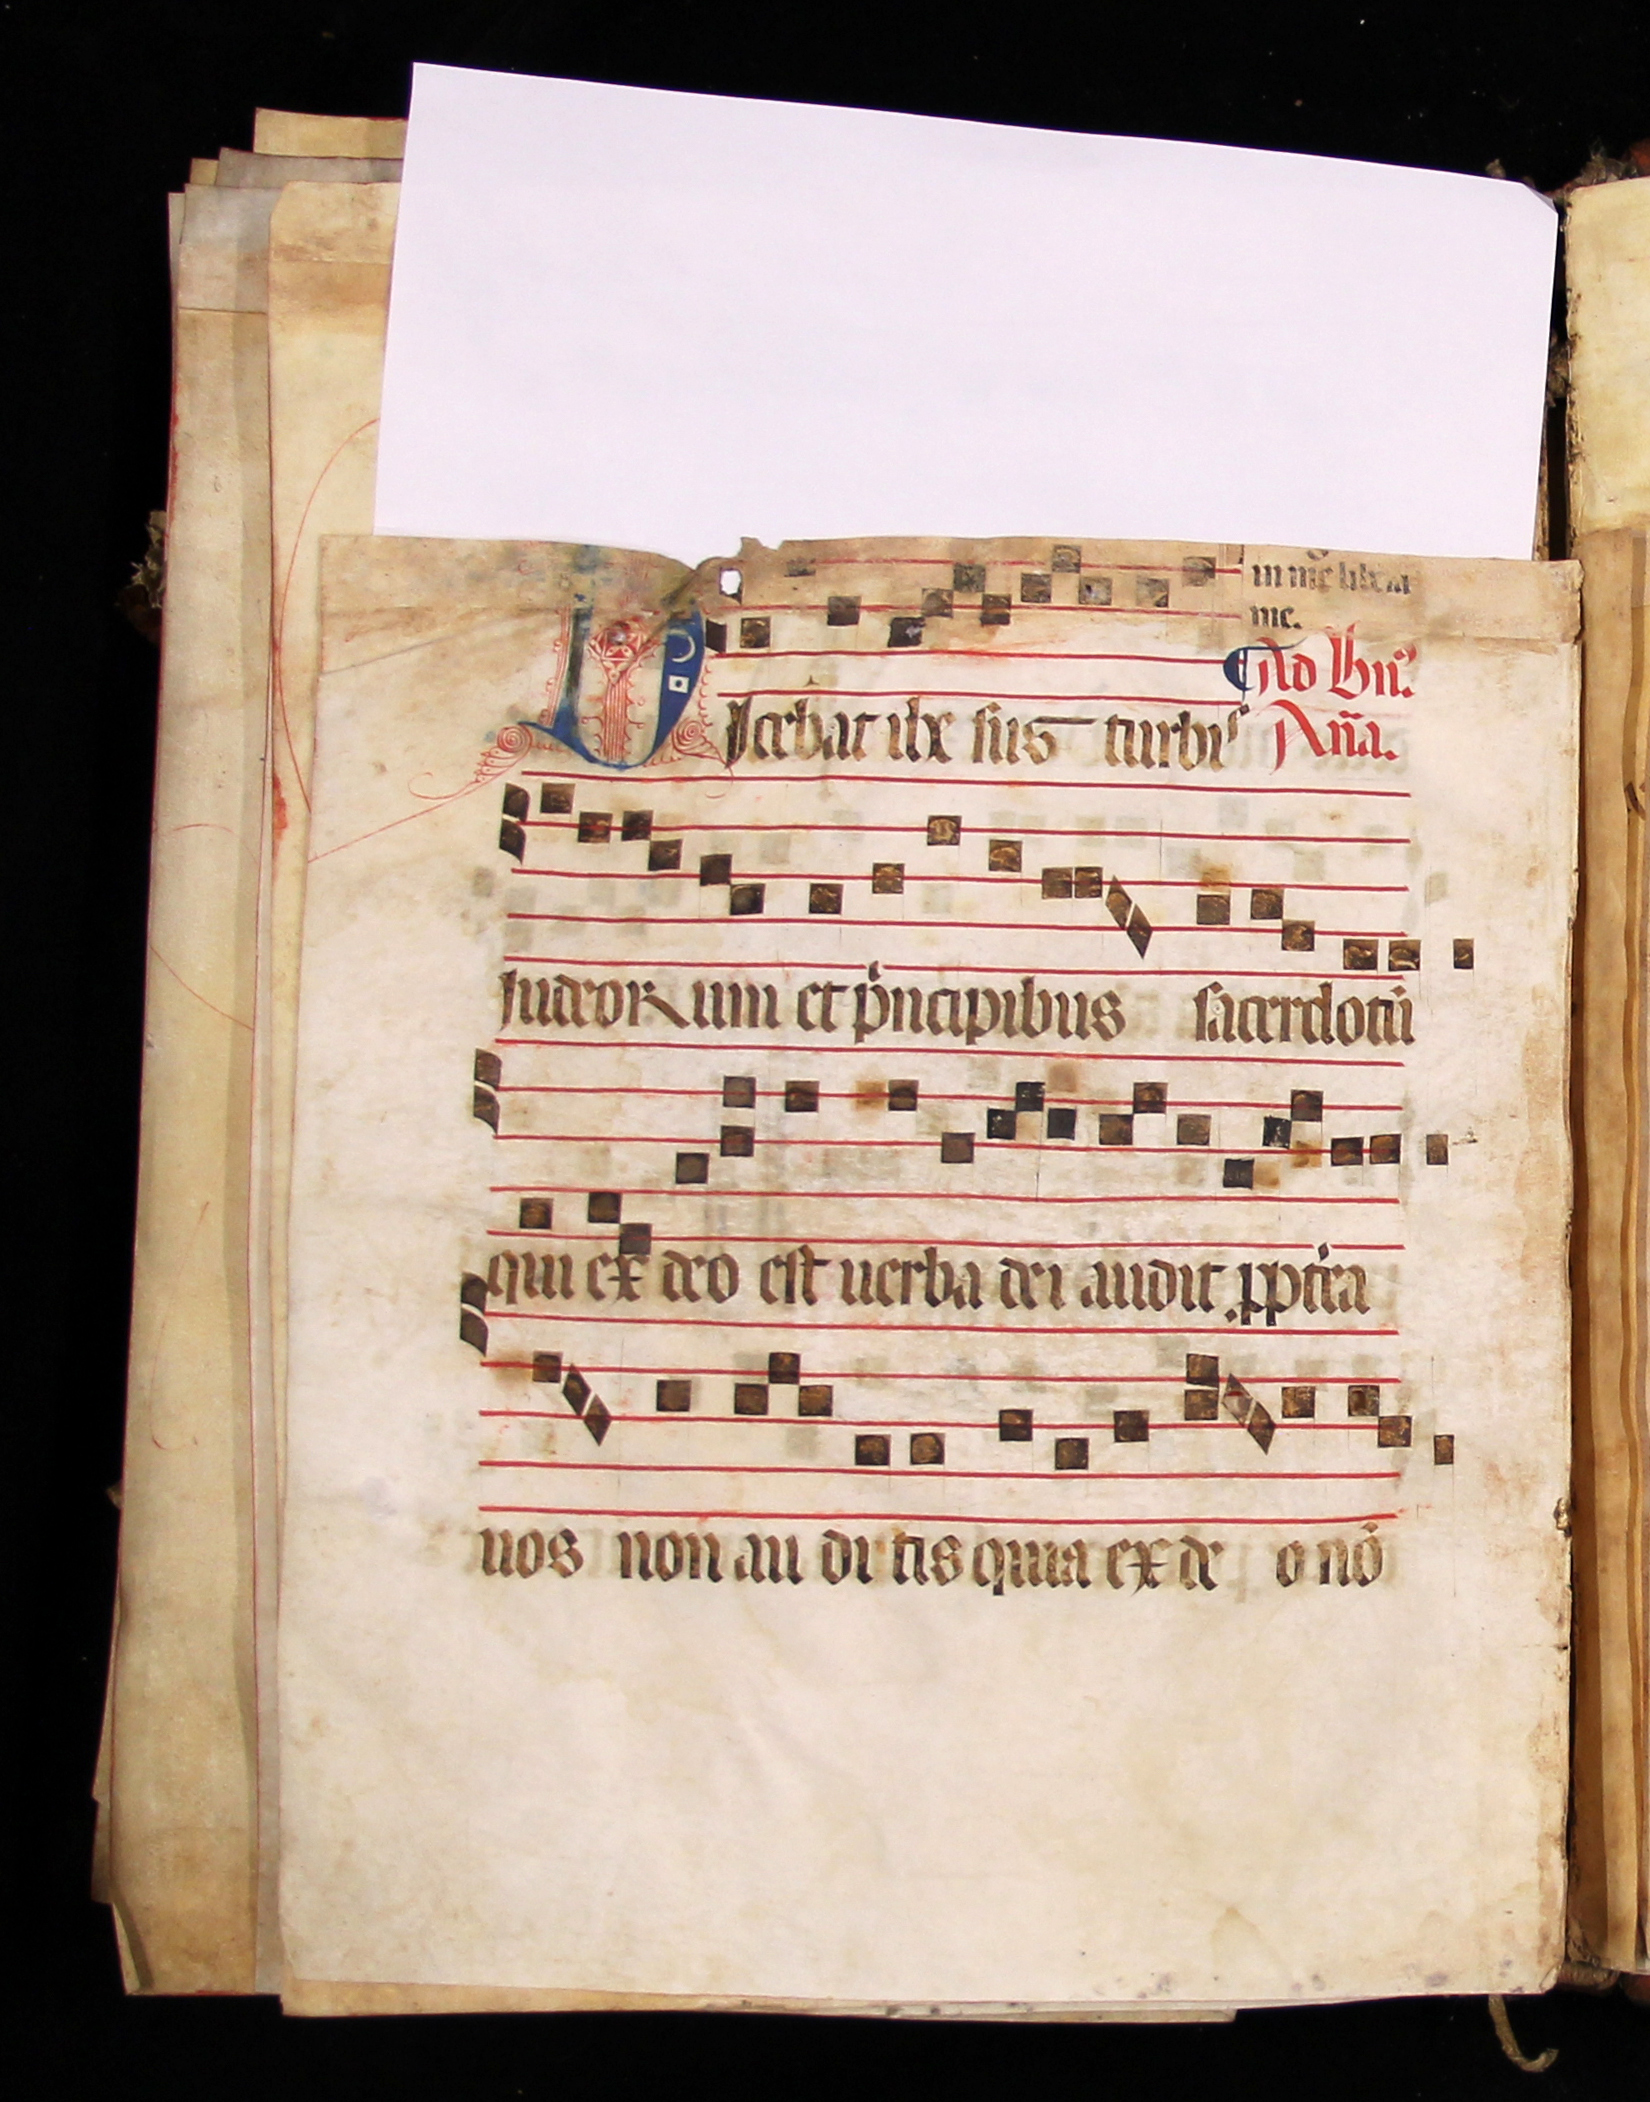 in me libera
me.
Ad bñ.
Dicebat ihe sus turbis
Aña.
iudeorum et pͥncipibus sacerdotũ
qui ex deo est uerba dei audit. ꝓpterea
uos non au di tis quia ex de o nõ